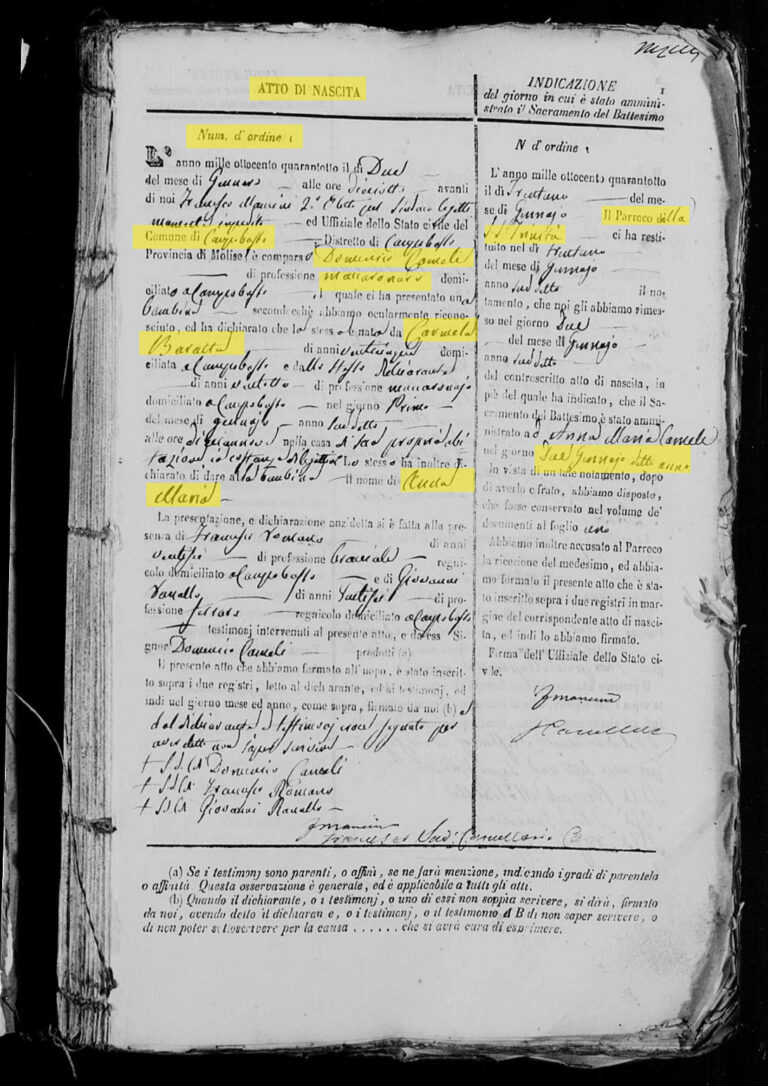 ATTO DI NASCITA
Num. d'ordine 1
L'anno mille ottocento quarantotto il dì Due
del mese di Gennaro alle ore avanti
di noi Francesco Mancini 2.° Eletto pel Sindaco
ed Uffiziale dello Stato civile del
Comune di Campobasso Distretto di Campobasso
Provincia di Molise, è comparso Domenico Cameli
di professione maccaronaro domi-
ciliato a Campobasso il quale ci ha presentato una
bambina secondochè abbiamo ocularmente ricono-
sciuto, ed ha dichiarato che lo stesso è nato da Carmela
Baratta di anni domi-
ciliata a Campobasso e dallo stesso Dichiarante
di anni ventotto di professione maccaronajo
domiciliato a Campobasso nel giorno Primo
del mese di gennajo anno suddetto
alle ore nella casa di sua propria abi
tazione Lo stesso ha inoltre di-
chiarato di dare alla bambina il nome di Anna
Maria
La presentazione, e dichiarazione anzidetta si è fatta alla pre-
senza di Francesco Romano di anni
di professione bracciale regni-
colo domiciliato a Campobasso e di Giovanni
Ranallo di anni di pro-
fessione ferraro regnicolo domiciliato a Campobasso
testimonj intervenuti al presente atto, e da esso Si-
gnor Domenico Cameli prodotti (a)
Il presente atto che abbiamo formato all'uopo, è stato inscrit-
to sopra i due registri, letto al dichiarante, ed ai testimonj, ed
indi nel giorno mese ed anno, come sopra, firmato da noi (b)
dal dichiarante e testimonj non segnato per
aver detto non saper scrivere
Domenico Cameli
Francesco Romano
Giovanni Ranallo
FMancini
INDICAZIONE 1
del giorno in cui è stato ammini-
strato il Sacramento del Battesimo
N d'ordine 1
L'anno mille ottocento quarantotto
il dì Trentuno del me-
se di Gennajo Il Parroco della
SS. Trinità ci ha resti-
tuito nel dì trentuno
del mese di Gennajo
anno suddetto il no-
tamento, che noi gli abbiamo rimes-
so nel giorno Due
del mese di Gennajo
anno suddetto
del controscritto atto di nascita, in
piè del quale ha indicato, che il Sa-
cramento del Battesimo è stato ammi-
nistrato a d. Anna Maria Cameli
nel giorno Due Gennajo detto anno
In vista di un tale notamento, dopo
di averlo cifrato, abbiamo disposto,
che fosse conservato nel volume de'
documenti al foglio uno
Abbiamo inoltre accusato al Parroco
la ricezione del medesimo, ed abbia-
mo formato il presente atto che è sta-
to inscritto sopra i due registri in mar-
gine del corrispondente atto di nasci-
ta, ed indi lo abbiamo firmato.
Firma dell'Uffiziale dello Stato ci-
vile.
FMancini
(a) Se i testimonj sono parenti, o affini, se ne farà menzione, indicando i gradi di parentela
o affinità Questa osservazione è generale, ed è applicabile a tutti gli atti.
(b) Quando il dichiarante, o i testimonj, o uno di essi non sappia scrivere, si dirà, firmato
da noi, avendo detto il dichiaran e, o i testimonj, o il testimonio A B di non saper scrivere, o
di non poter sottoscrivere per la causa . . . . . . che si avrà cura di esprimere.